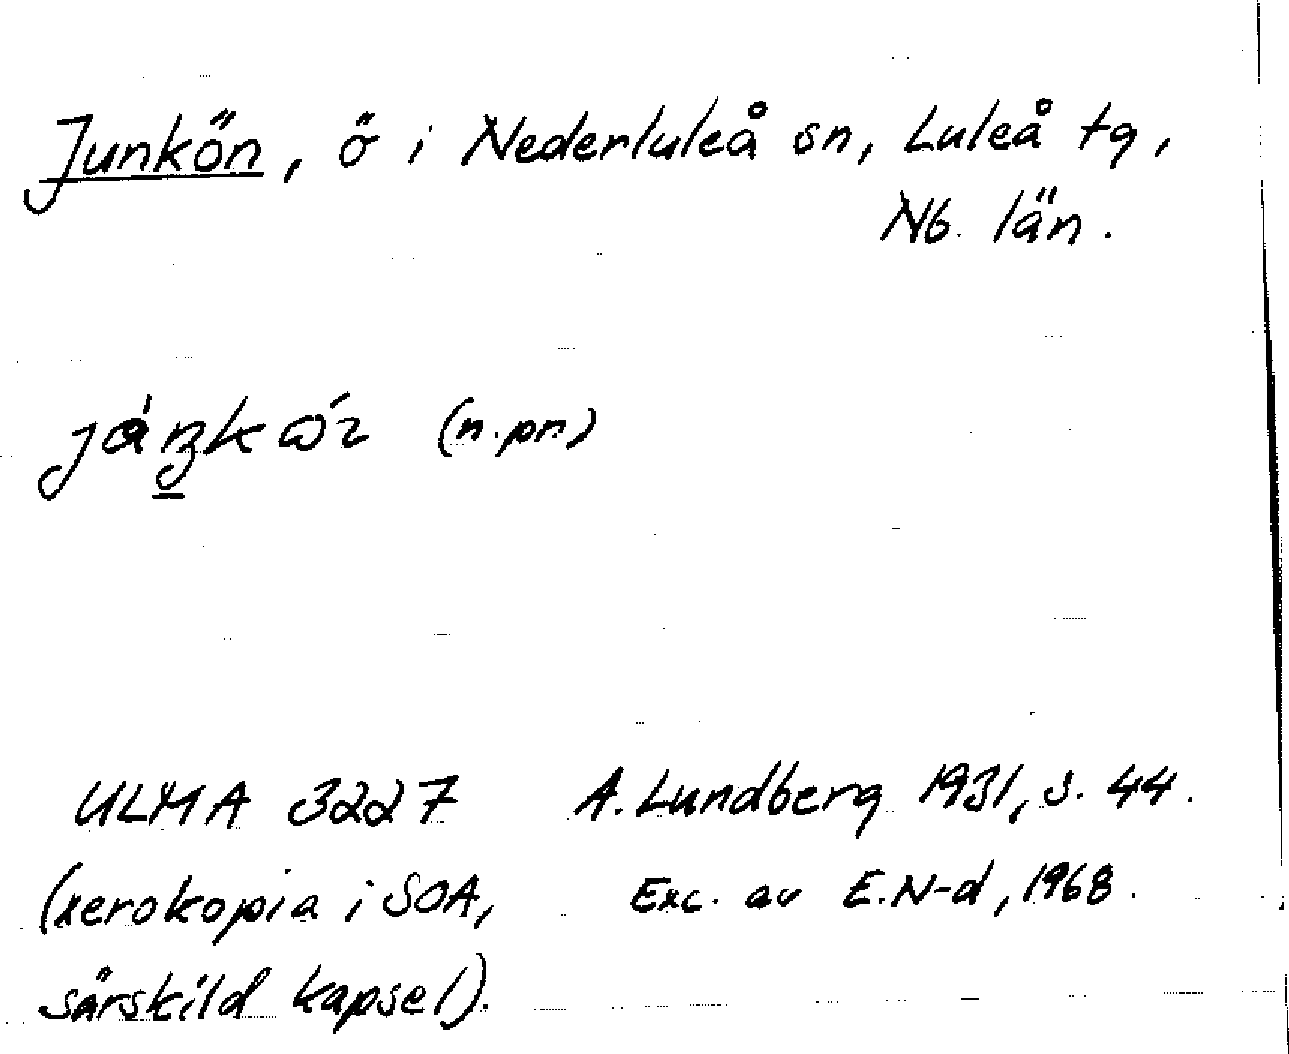 Junkön, ö i Nederluleå sn, Luleå tg,
Nb. län.
(n.pn)
ULMA 3227 A. Lundberg 1931, s. 44.
(xerokopia i SOA, Exc. av E.N-d, 1968.
särskild kapsel).